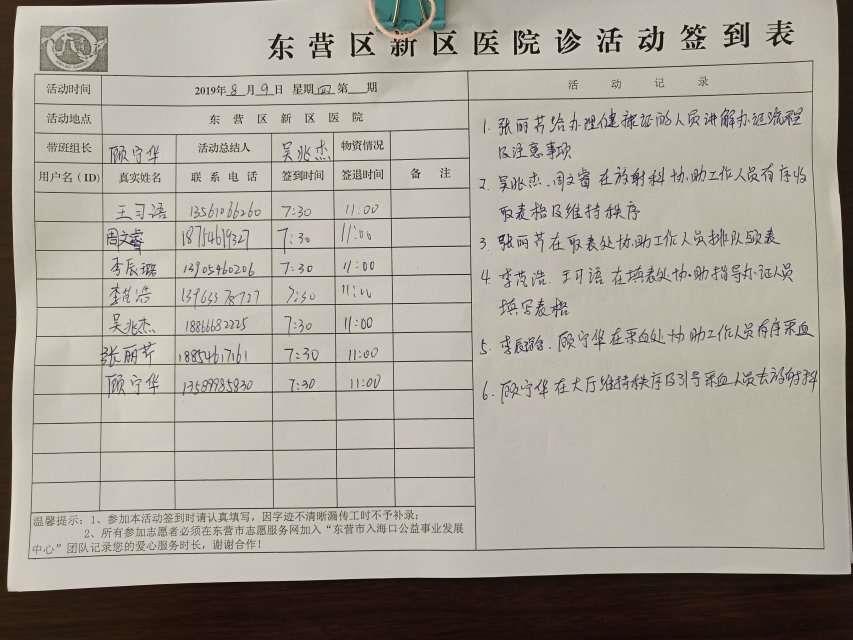 东营区新区医院诊活动签到表
活动时间 2019年8月9日 星期四 第 期
活动地点 东营区新区医院
带班组长 顾守华 活动总结人 吴兆杰 物资情况
用户名(ID) 真实姓名 联系电话 签到时间 签退时间 备注
王习语 13561066260 7:30 11:00
周文睿 18754619327 7:30 11:00
李辰璐 13905460206 7:30 11:00
李茂浩 7:30 11:00
吴兆杰 18866682225 7:30 11:00
张丽芹 18854617161 7:30 11:00
顾守华 13589935830 7:30 11:00
温馨提示:1、参加本活动签到时请认真填写,因字迹不清晰漏传工时不予补录;
2、所有参加志愿者必须在东营市志愿服务网加入“东营市入海口公益事业发展
中心”团队记录您的爱心服务时长,谢谢合作!
活动记录
1. 张丽芹给办理健康证的人员讲解办证流程
及注意事项
2. 吴兆杰、周文睿在放射科协助工作人员有序收
取表格及维持秩序
3. 张丽芹在取表处协助工作人员排队取表
4. 李茂浩、王习语在填表处协助指导办证人员
填写表格
5. 李辰璐、顾守华在采血处协助工作人员有序采血
6. 顾守华在大厅维持秩序及引导采血人员去放射科